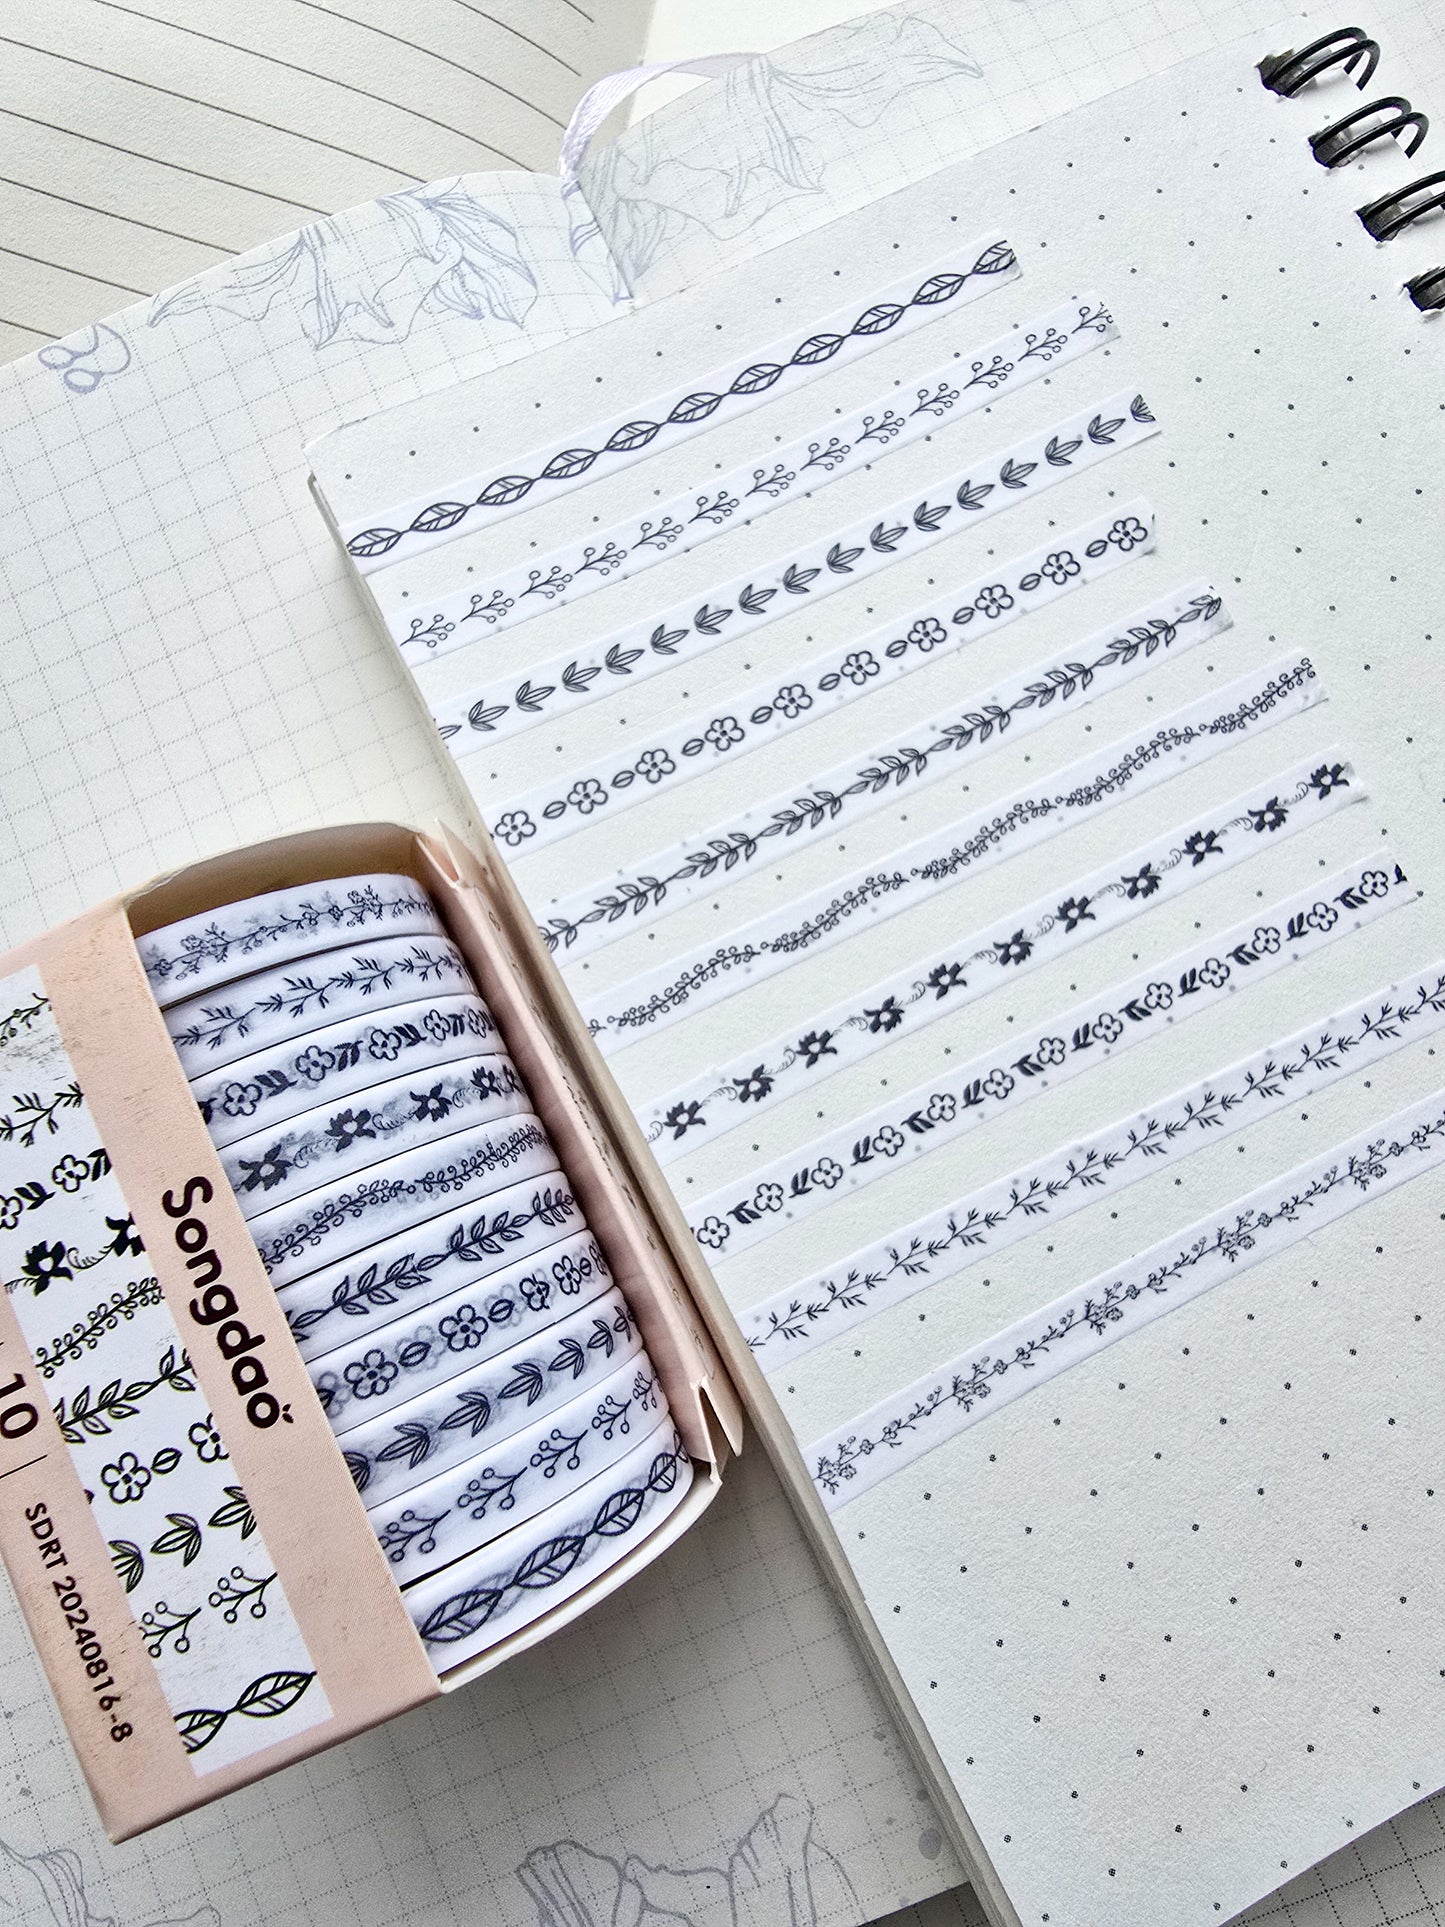 Songdao
10
SDRT 20240816-8